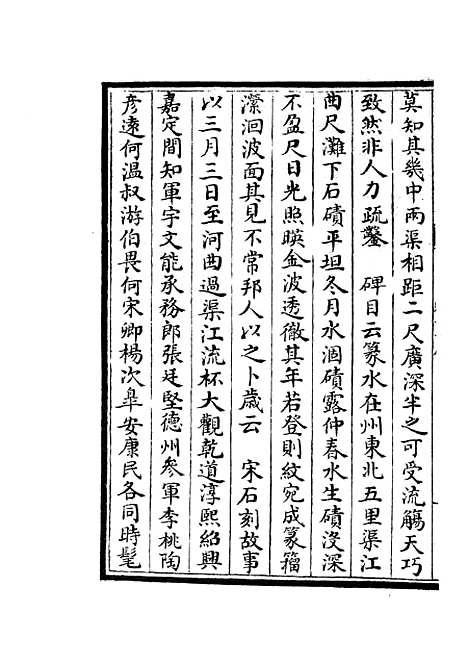 莫知其幾中兩渠相距二尺廣深半之可受流觴天巧
致然非人力疏鑿　碑目云篆水在州東北五里渠江
曲尺灘下石磧平坦冬月水涸磧露仲春水生磧沒深
不盈尺日光照暎金波透徹其年若登則紋宛成篆籀
瀠洄波面其見不常邦人以之卜歲云　宋石刻故事
以三月三日至河曲過渠江流杯大觀乾道淳熙紹興
嘉定間知軍宇文能承務郎張廷堅德州叅軍李桃陶
彦遠何温叔游伯畏何宋卿楊次臯安康民各同時髦